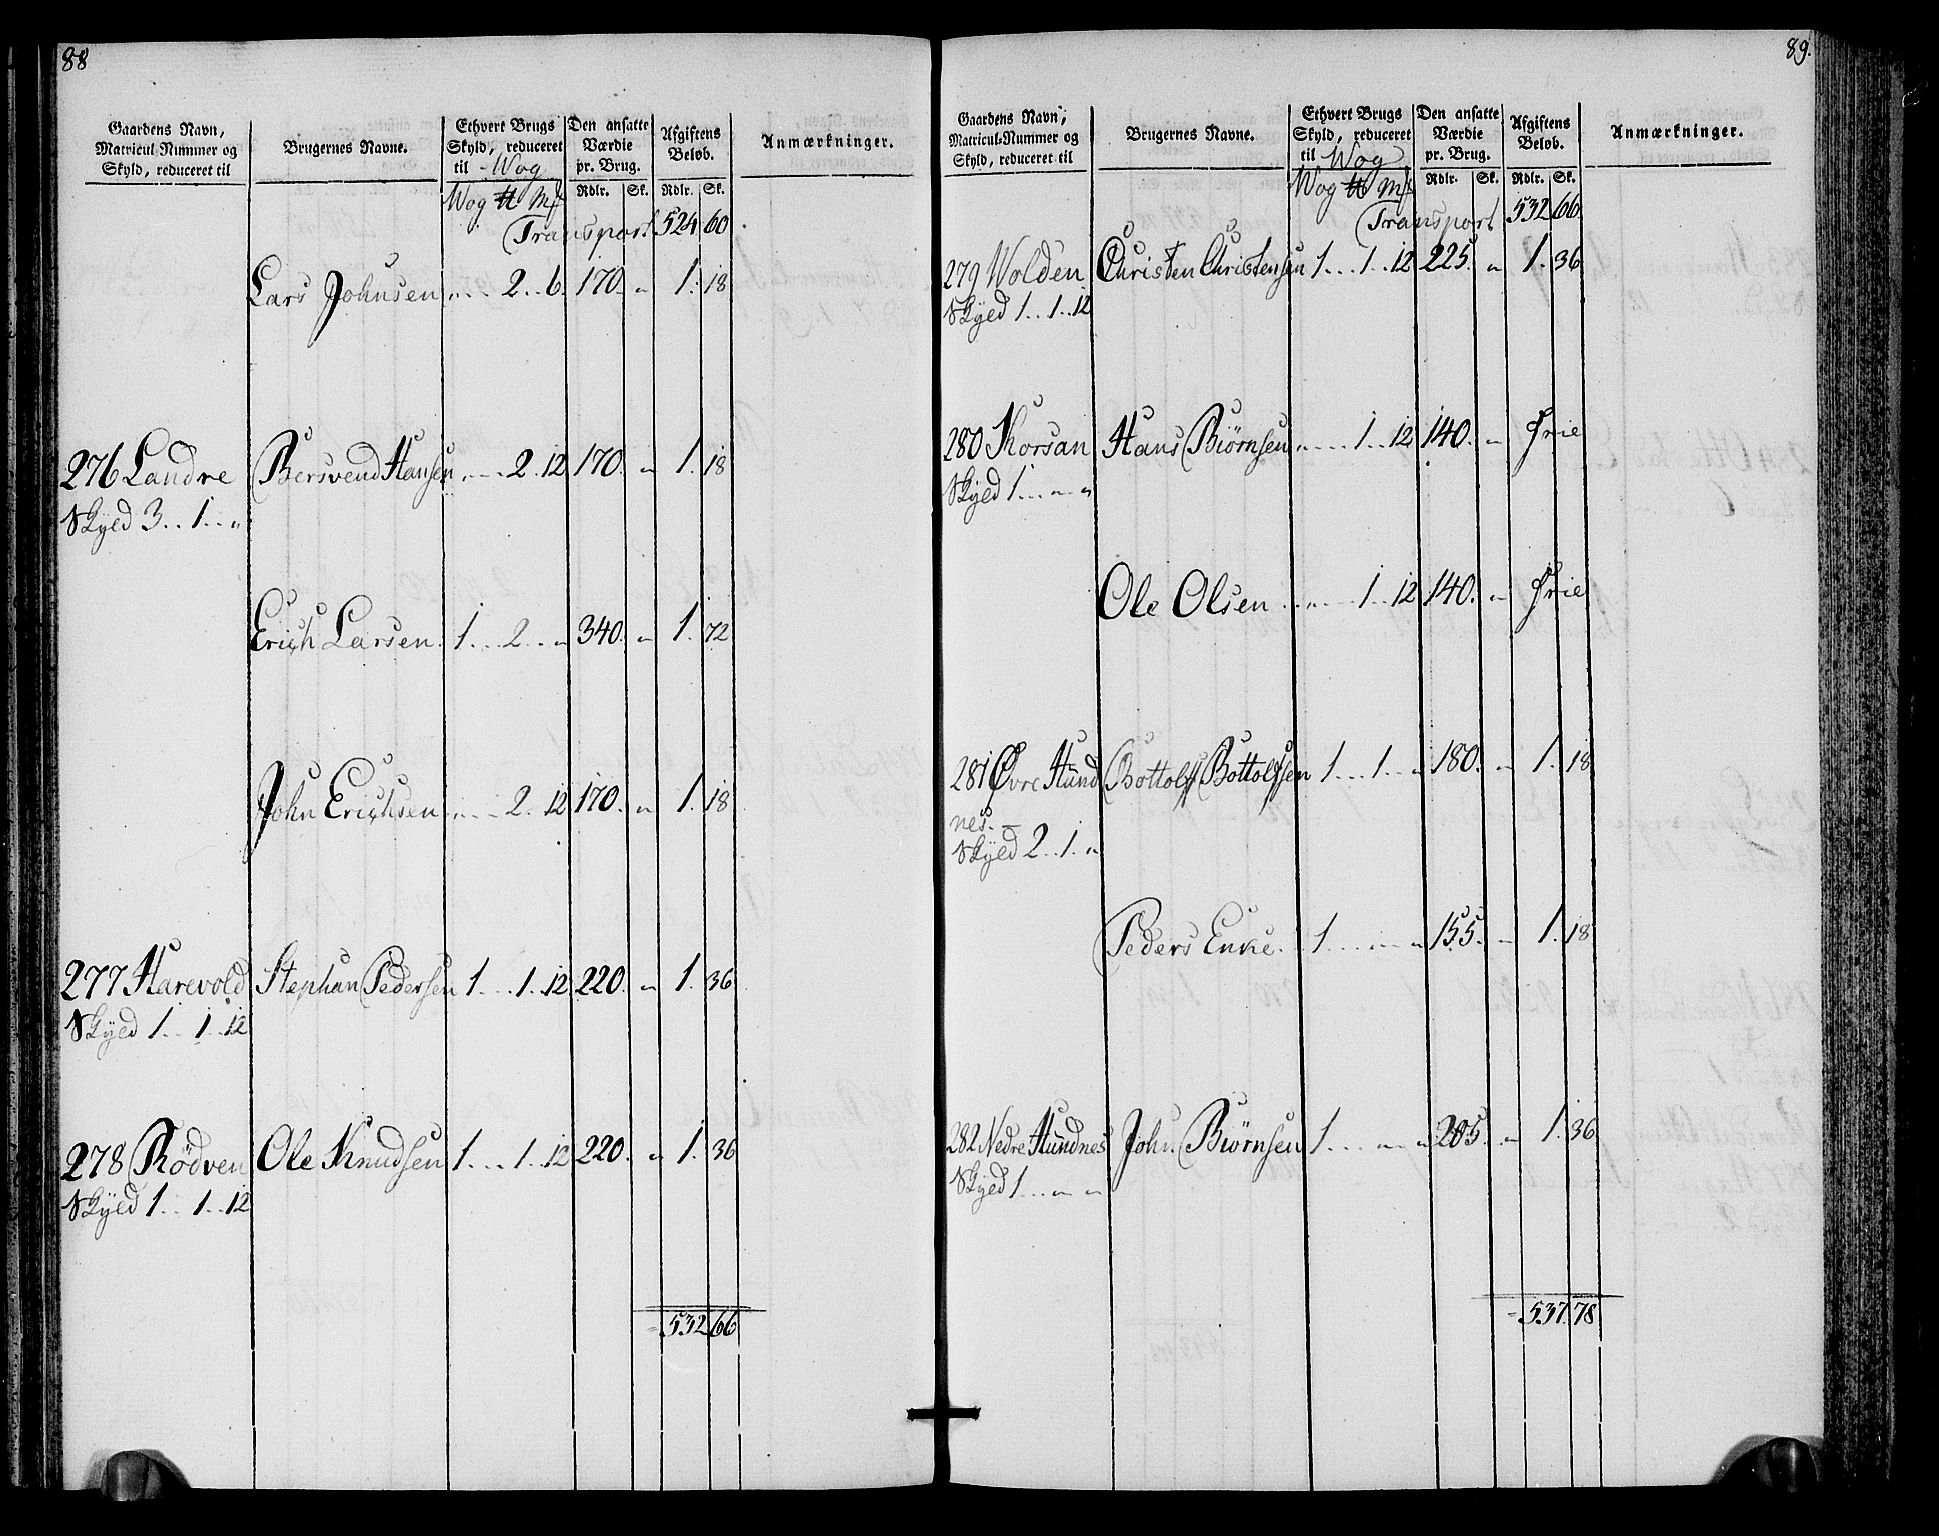 88
Gaardens Navn, Matricul-Nummer og Skyld, reduceret til
Brugernes Navne.
Ethvert Brugs Skyld, reduceret til Wog
Den ansatte Værdie pr. Brug.
Afgiftens Beløb.
Anmærkninger.
Wog ℔ Mk Rdlr. Sk. Rdlr. Sk.
Transport 524 60
Lars Johnsen " 2 6 170 " 1 18
276 Landre Bersvend Hansen " 2 12 170 " 1 18
Skyld 3 1 "
Erich Larsen 1 2 " 340 " 1 72
John Erichsen " 2 12 170 " 1 18
277 Harevold Stephan Pedersen 1 1 12 220 " 1 36
Skyld 1 1 12
278 Rödven Ole Knudsen 1 1 12 220 " 1 36
Skyld 1 1 12
= 532 66
89.
Gaardens Navn, Matricul-Nummer og Skyld, reduceret til
Brugernes Navne.
Ethvert Brugs Skyld, reduceret til Wog
Den ansatte Værdie pr. Brug.
Afgiftens Beløb.
Anmærkninger.
Wog ℔ Mk Rdlr. Sk. Rdlr. Sk.
Transport 532 66
279 Wolden Christen Christensen 1 1 12 225 " 1 36
Skyld 1 1 12
280 Korsan Hans Biørnsen " 1 12 140 " Frie
Skyld 1 " "
Ole Olsen " 1 12 140 " Frie
281 Øvre Hund Bottolf Bottolfsen 1 1 " 180 " 1 18
nes.
Skyld 2 1 "
Peders Enke 1 " " 155 " 1 18
282 Nedre Hundnes John Biørnsen 1 " " 205 " 1 36
Skyld 1 " "
= 537 78